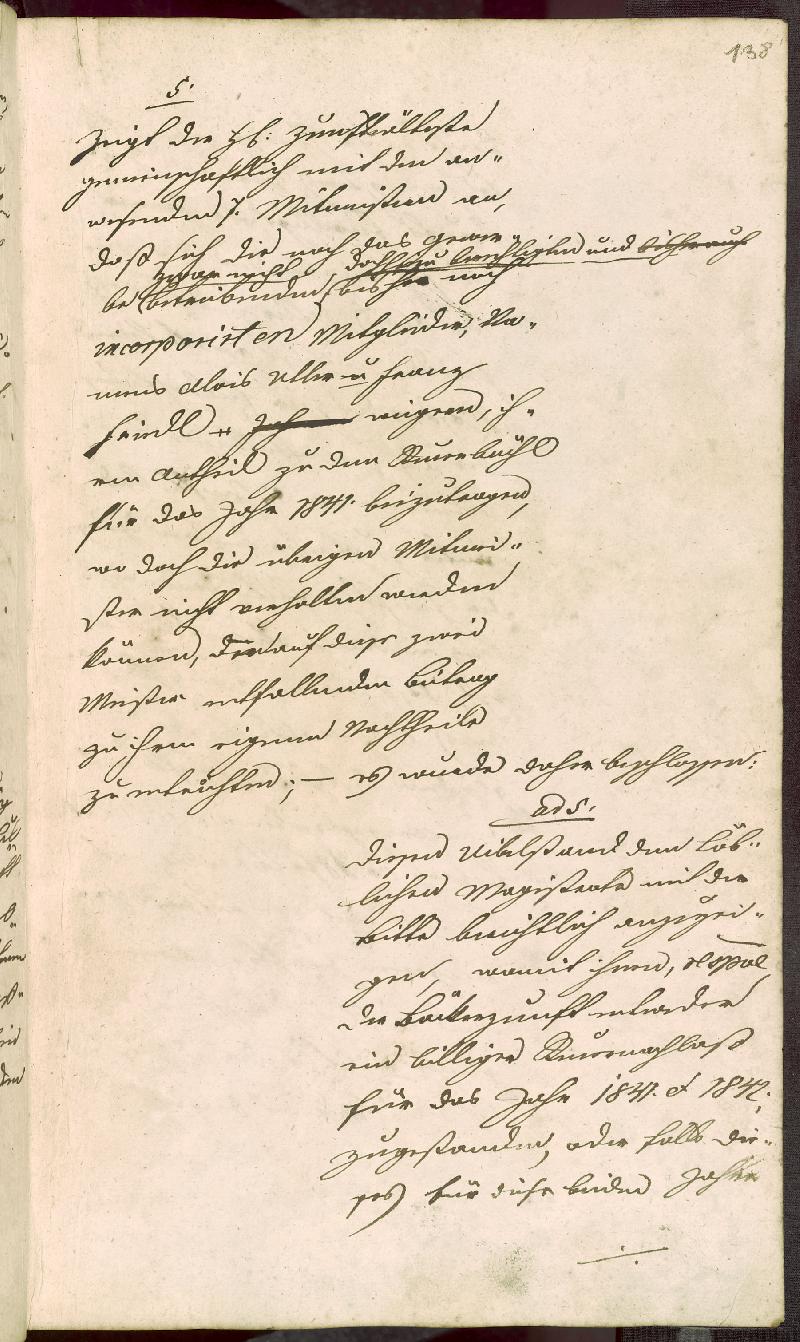 138
5.
Zeigt der H: Zunftälteste
gemeinschaftlich mit den an-
wesenden H. Mitmeistern an,
daß sich die noch das Gewer-
zwar nicht doch zu und
be betreibenden, bisher noch
incorporirten Mitglieder, Na-
mens Alois Uller u Franz
Friedl weigern, ih-
ren Antheil zu dem Steuerbüchl
für das Jahr 1841. beizutragen,
wo doch die übrigen Mitmei-
ster nicht verhalten werden
können, den auf diese zwei
Meister entfallenden Beitrag
zu ihrem eigenen Nachtheile
zu entrichten; — es wurde daher beschlossen:
ad 5.
Diesen Uibelstand dem Löb-
lichen Magistrate mit der
Bitte berichtlich anzuzei-
gen, womit ihnen, respve
der Bäckerzunft entweder
ein billiger Steuernachlaß
für das Jahr 1841. et 1842.
zugestanden, oder falls die-
ses für diese beiden Jahre